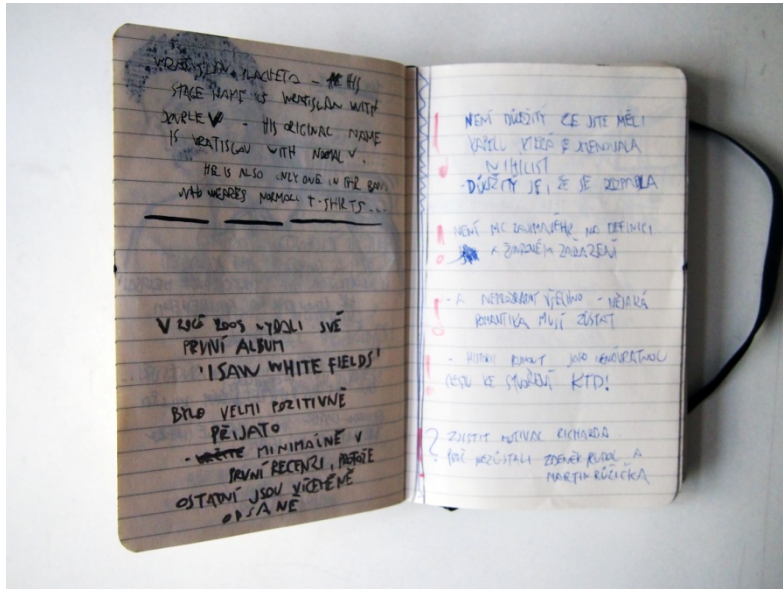 VRATISLAV PLACHETA - HIS
STAGE NAME IS WRATISLAW WITH
DOUBLE V - HIS ORIGINAL NAME
IS VRATISLAV WITH NORMAL V.
HE IS ALSO ONLY ONE IN THE BAND
WHO WEARES NORMALL T-SHIRTS...
V ROCE 2005 VYDALI SVÉ
PRVNÍ ALBUM
'I SAW WHITE FIELDS'
BYLO VELMI POZITIVNĚ
PŘIJATO
- MINIMÁLNĚ V
PRVNÍ RECENZI, PROTOŽE
OSTATNÍ JSOU VÍCEMÉNĚ
OPSANÉ
! NENÍ DŮLEŽITÝ ŽE JSTE MĚLI
KAPELU KTERÁ SE JMENOVALA
NIHILIST
- DŮLEŽITÝ JE, ŽE SE ROZPADLA
! NENÍ NIC ZAJÍMAVÉHO NA DEFINICI
A ŽÁNROVÉM ZAŘAZENÍ
! - A NEPROZRADIT VŠECHNO - NĚJAKÁ
ROMANTIKA MUSÍ ZŮSTAT
! - HISTORII POJMOUT JAKO
CESTU KE STVOŘENÍ KTD!
? ZJISTIT MOTIVACI RICHARDA
! PROČ NEZŮSTALI ZDENĚK A
MARTIN RŮŽIČKA